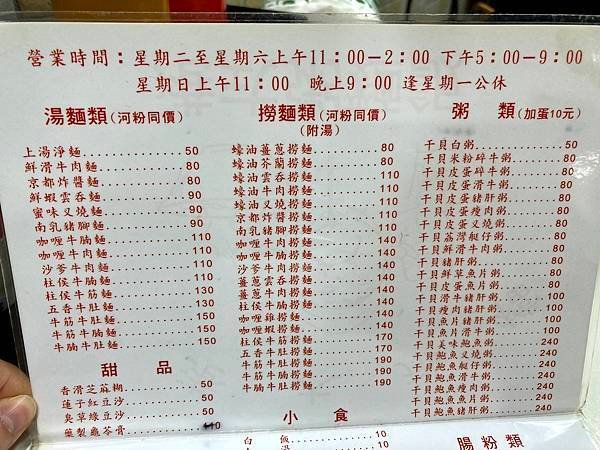 營業時間：星期二至星期六上午11：00－2：00 下午5：00－9：00
星期日上午11：00 晚上9：00 逢星期一公休
湯麵類(河粉同價)
上湯淨麵 50
鮮滑牛肉麵 80
京都炸醬麵 80
鮮蝦雲吞麵 90
蜜味叉燒麵 90
南乳豬腳麵 90
咖喱牛腩麵 110
咖喱牛肉麵 110
沙爹牛肉麵 110
柱侯牛腩麵 110
柱侯牛筋麵 130
五香牛肚麵 130
牛筋牛肚麵 150
牛筋牛腩麵 150
牛腩牛肚麵 150
甜品
香滑芝蔴糊 50
蓮子紅豆沙 50
臭草綠豆沙 50
藥製龜苓膏 110
撈麵類(河粉同價)
(附湯)
蠔油薑蔥撈麵 80
蠔油芥蘭撈麵 80
蠔油雲吞撈麵 110
蠔油牛肉撈麵 110
蠔油叉燒撈麵 110
京都炸醬撈麵 110
南乳豬腳撈麵 110
咖喱牛腩撈麵 140
咖喱牛肉撈麵 140
沙爹牛肉撈麵 140
薑蔥雲吞撈麵 140
薑蔥牛肉撈麵 140
柱侯牛腩撈麵 140
咖喱雞撈麵 140
咖喱蝦撈麵 140
柱侯牛筋撈麵 170
五香牛肚撈麵 170
牛筋牛肚撈麵 190
牛筋牛腩撈麵 190
牛腩牛肚撈麵 190
小食
白飯 10
10
粥類(加蛋10元)
干貝白粥 50
干貝米粉碎牛粥 80
干貝皮蛋碎牛粥 80
干貝皮蛋滑牛粥 80
干貝皮蛋豬肝粥 80
干貝皮蛋瘦肉粥 80
干貝皮蛋叉燒粥 80
干貝荔灣艇仔粥 80
干貝鮮滑牛肉粥 80
干貝豬肝粥 80
干貝鮮草魚片粥 80
干貝皮蛋魚片粥 80
干貝滑牛豬肝粥 100
干貝瘦肉豬肝粥 100
干貝魚片豬肝粥 100
干貝魚片滑牛粥 100
干貝美味鮑魚粥 240
干貝鮑魚叉燒粥 240
干貝鮑魚艇仔粥 240
干貝鮑魚滑牛粥 240
干貝鮑魚瘦肉粥 240
干貝鮑魚魚片粥 240
干貝鮑魚豬肝粥 240
腸粉類